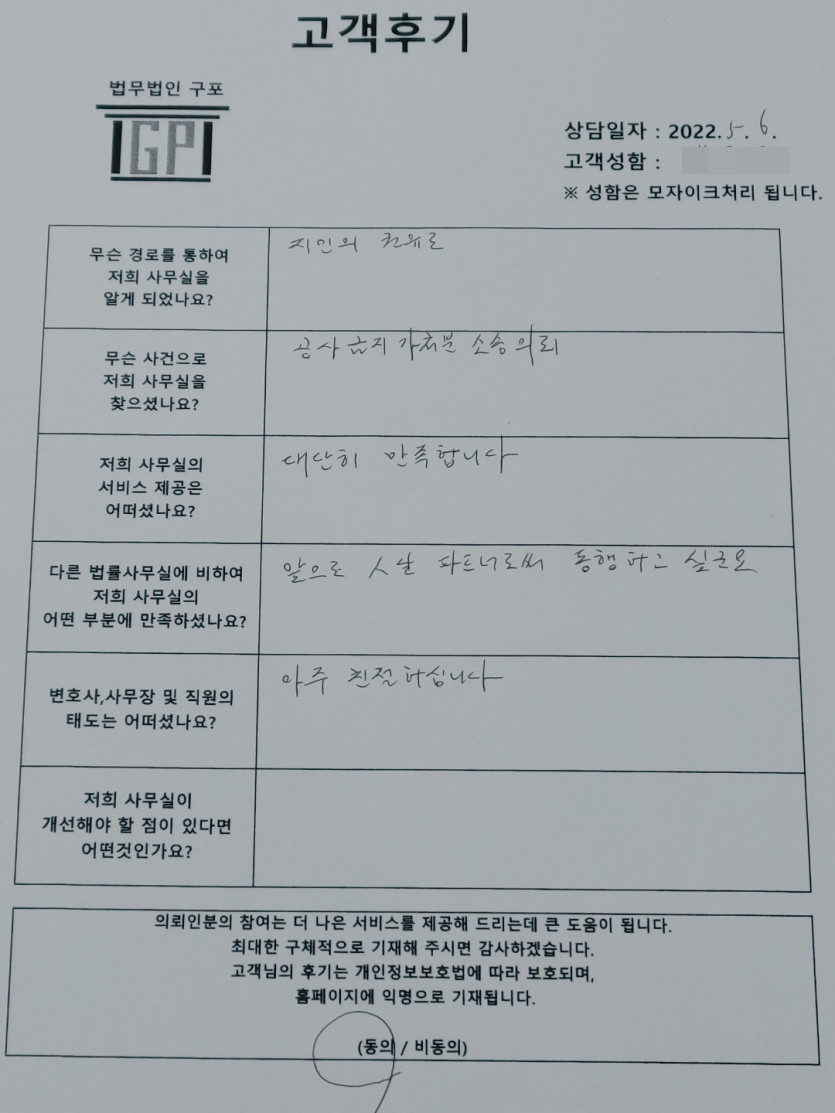 고객후기
법무법인 구포
IGPI
상담일자 : 2022. 5. 6.
고객성함 :
※ 성함은 모자이크처리 됩니다.
무슨 경로를 통하여
저희 사무실을
알게 되었나요?
지인의 권유로
무슨 사건으로
저희 사무실을
찾으셨나요?
공사금지가처분 소송의뢰
저희 사무실의
서비스 제공은
어떠셨나요?
대단히 만족합니다
다른 법률사무실에 비하여
저희 사무실의
어떤 부분에 만족하셨나요?
앞으로 파트너로써 동행하고 싶군요
변호사,사무장 및 직원의
태도는 어떠셨나요?
아주 친절하십니다
저희 사무실이
개선해야 할 점이 있다면
어떤것인가요?
의뢰인분의 참여는 더 나은 서비스를 제공해 드리는데 큰 도움이 됩니다.
최대한 구체적으로 기재해 주시면 감사하겠습니다.
고객님의 후기는 개인정보보호법에 따라 보호되며,
홈페이지에 익명으로 기재됩니다.
(동의 / 비동의)